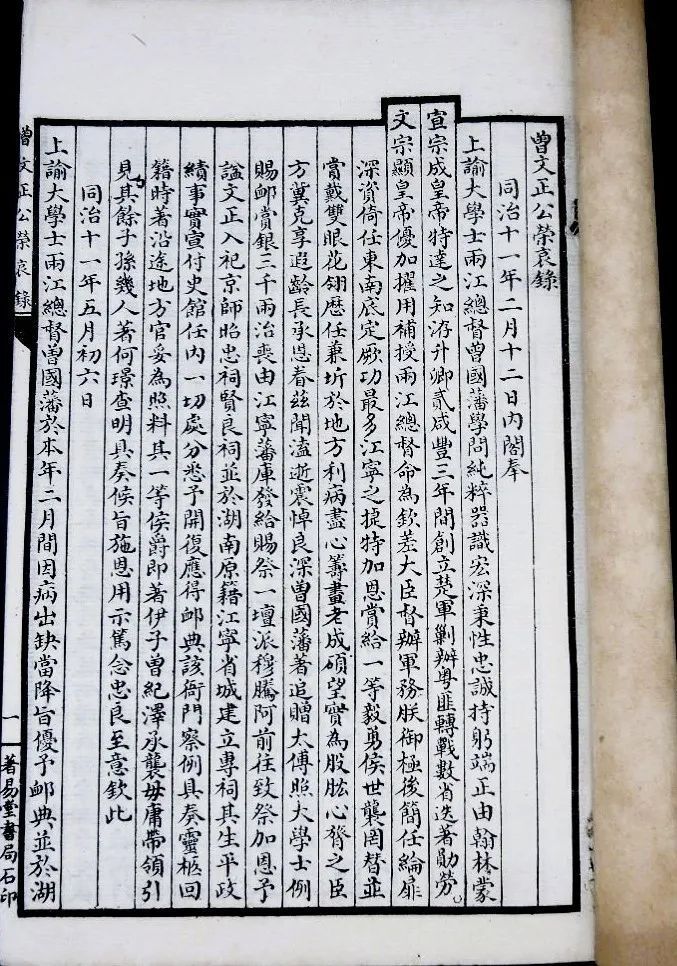 曾文正公榮哀錄
同治十一年二月十二日內閣奉
上諭大學士兩江總督曾國藩學問純粹器識宏深秉性忠誠持躬端正由翰林蒙
宣宗成皇帝特達之知洊升卿貳咸豐三年間創立楚軍剿辦粵匪轉戰數省迭著勛勞
文宗顯皇帝優加擢用補授兩江總督命為欽差大臣督辦軍務朕御極後簡任綸扉
深資倚任東南底定厥功最多江寧之捷特加恩賞給一等毅勇侯世襲罔替並
賞戴雙眼花翎歷任兼圻於地方利病盡心籌畫老成碩望實為股肱心膂之臣
方冀克享遐齡長承恩眷茲聞溘逝震悼良深曾國藩著追贈太傅照大學士例
賜卹賞銀三千兩治喪由江寧藩庫發給賜祭一壇派穆騰阿前往致祭加恩予
謚文正入祀京師昭忠祠賢良祠並於湖南原籍江寧省城建立專祠其生平政
績事實宣付史館任內一切處分悉予開復應得卹典該衙門察例具奏靈柩回
籍時著沿途地方官妥為照料其一等侯爵即著伊子曾紀澤承襲毋庸帶領引
見其餘子孫幾人著何璟查明具奏候旨施恩用示篤念忠良至意欽此
同治十一年五月初六日
上諭大學士兩江總督曾國藩於本年二月間因病出缺當降旨優予卹典並於湖
曾文正公榮哀錄
一
著易堂書局石印